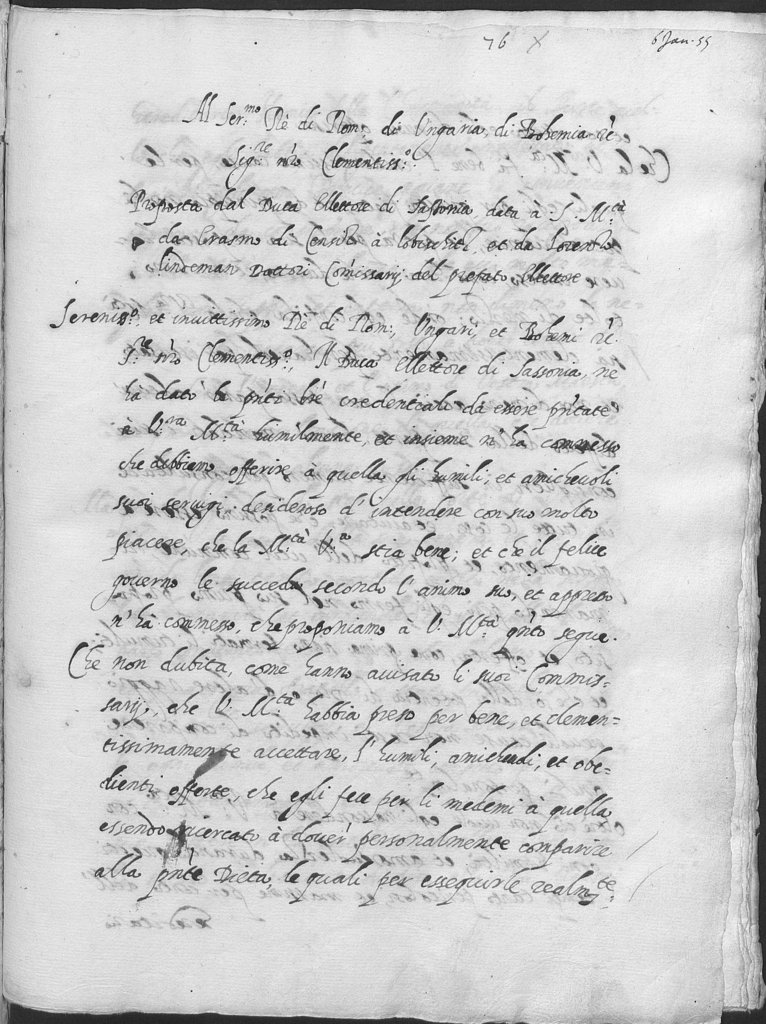 76 X 6 Jan. 55
Al Ser.mo Rè di Rom:, di Ungaria, di Bohemia rè.
Sig.re nr̃o Clementiss.o
Proposta dal Duca Ellettore di Sassonia data à S. M.tà
da Erasmo di à et da Lorenzo
lindeman Dottori Com̃issarij del prefato Ellettore
Sereniss.o et invittissimo Rè di Rom:, Ungari, et Bohemi rè.
S.re nr̃o Clementiss.o, Il Duca Ellettore di Sassonia, ne
hà dato le pñti lr̃e credentiali da essere pñtate
à V.ra M.tà humilmente, et insieme n'hà commesso
che debbiamo offerire à quella gli humili, et amichevoli
suoi servigi desideroso d'intendere con suo molto
piacere, che la M.tà V.a stia bene; et che il felice
governo le succeda secondo l'animo suo, et appresso
n'hà commesso, che proponiamo à V. M.tà qñto segue.
Che non dubita, come hanno avisato li suoi Commis=
sarij, che V. M.tà habbia preso per bene, et clemen=
tissimamente accettare, l'humili, amichevoli, et obe=
dienti offerte, che egli fece per li medemi à quella
essendo ricercato à dover personalmente comparire
alla pñte Dieta, le quali per esseguirle realm.te